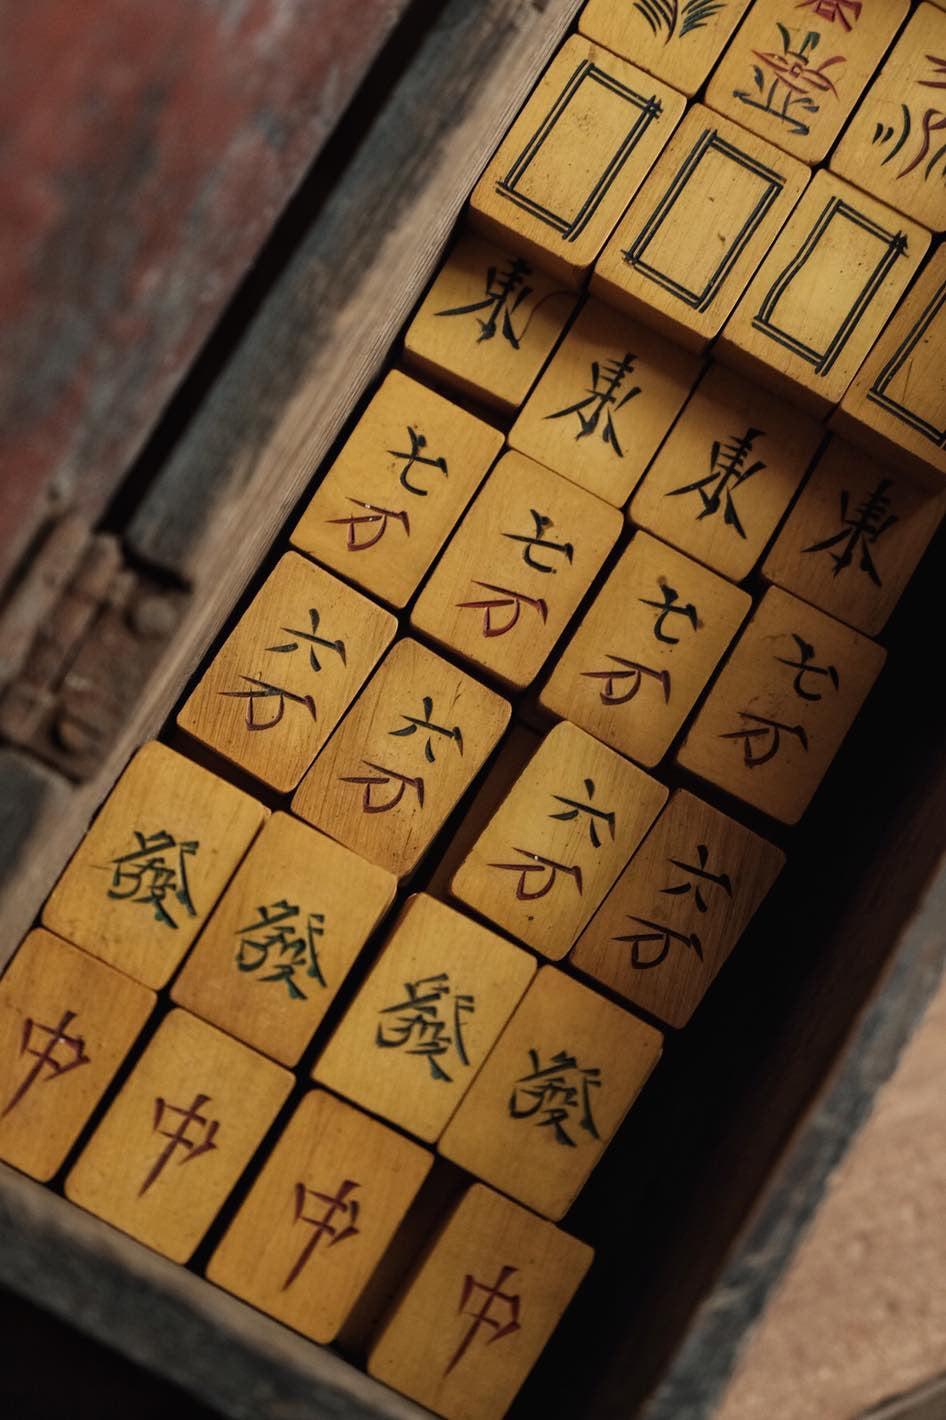 東 東 東 東
七万 七万 七万 七万
六万 六万 六万 六万
發 發 發 發
中 中 中 中